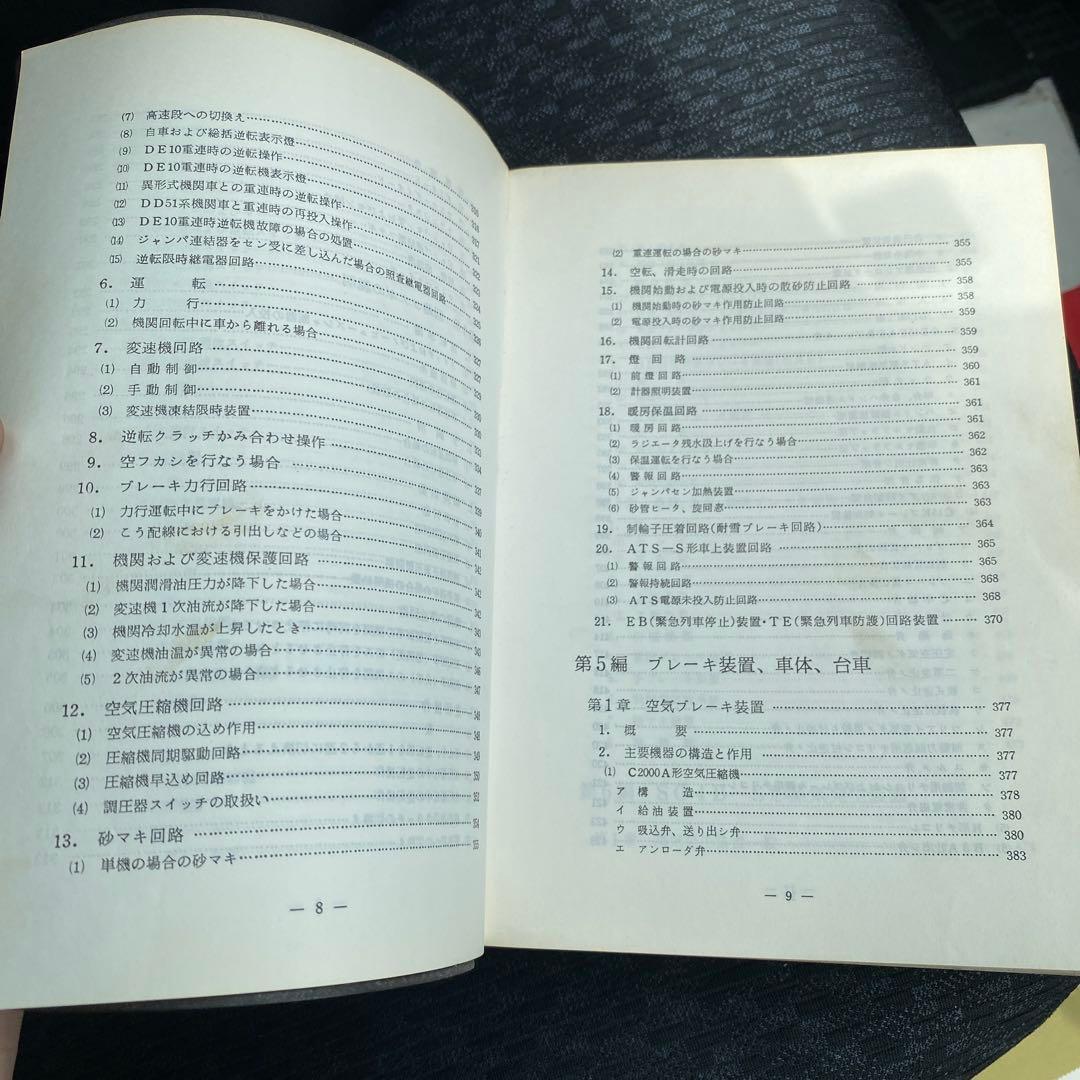 (7) 高速段への切換え
(8) 自車および総括逆転表示燈
(9) DE10重連時の逆転操作
(10) DE10重連時の逆転機表示燈
(11) 異形式機関車との重連時の逆転操作
(12) DD51系機関車と重連時の再投入操作
(13) DE10重連時逆転機故障の場合の処置
(14) ジャンパ連結器をセン受に差し込んだ場合の照査継電器回路
(15) 逆転限時継電器回路
6. 運 転
(1) 力 行
(2) 機関回転中に車から離れる場合
7. 変速機回路
(1) 自動制御
(2) 手動制御
(3) 変速機凍結限時装置
8. 逆転クラッチかみ合わせ操作
9. 空フカシを行なう場合
10. ブレーキ力行回路
(1) 力行運転中にブレーキをかけた場合
(2) こう配線における引出しなどの場合
11. 機関および変速機保護回路
(1) 機関潤滑油圧力が降下した場合
(2) 変速機1次油流が降下した場合
(3) 機関冷却水温が上昇したとき
(4) 変速機油温が異常の場合
(5) 2次油流が異常の場合
12. 空気圧縮機回路
(1) 空気圧縮機の込め作用
(2) 圧縮機同期駆動回路
(3) 圧縮機早込め回路
(4) 調圧器スイッチの取扱い
13. 砂マキ回路
(1) 単機の場合の砂マキ
— 8 —
(2) 重連運転の場合の砂マキ 355
14. 空転、滑走時の回路 355
15. 機関始動および電源投入時の散砂防止回路 358
(1) 機関始動時の砂マキ作用防止回路 358
(2) 電源投入時の砂マキ作用防止回路 359
16. 機関回転計回路 359
17. 燈回路 359
(1) 前燈回路 360
(2) 計器照明装置 361
18. 暖房保温回路 361
(1) 暖房回路 361
(2) ラジエータ残水汲上げを行なう場合 362
(3) 保温運転を行なう場合 362
(4) 警報回路 363
(5) ジャンパセン加熱装置 363
(6) 砂管ヒータ、旋回窓 363
19. 制輪子圧着回路(耐雪ブレーキ回路) 364
20. ATS—S形車上装置回路 365
(1) 警報回路 365
(2) 警報持続回路 368
(3) ATS電源未投入防止回路 368
21. EB(緊急列車停止)装置・TE(緊急列車防護)回路装置 370
第5編 ブレーキ装置、車体、台車
第1章 空気ブレーキ装置 377
1. 概 要 377
2. 主要機器の構造と作用 377
(1) C2000A形空気圧縮機 377
ア 構 造 378
イ 給油装置 380
ウ 吸込弁、送り出シ弁 380
エ アンローダ弁 383
— 9 —